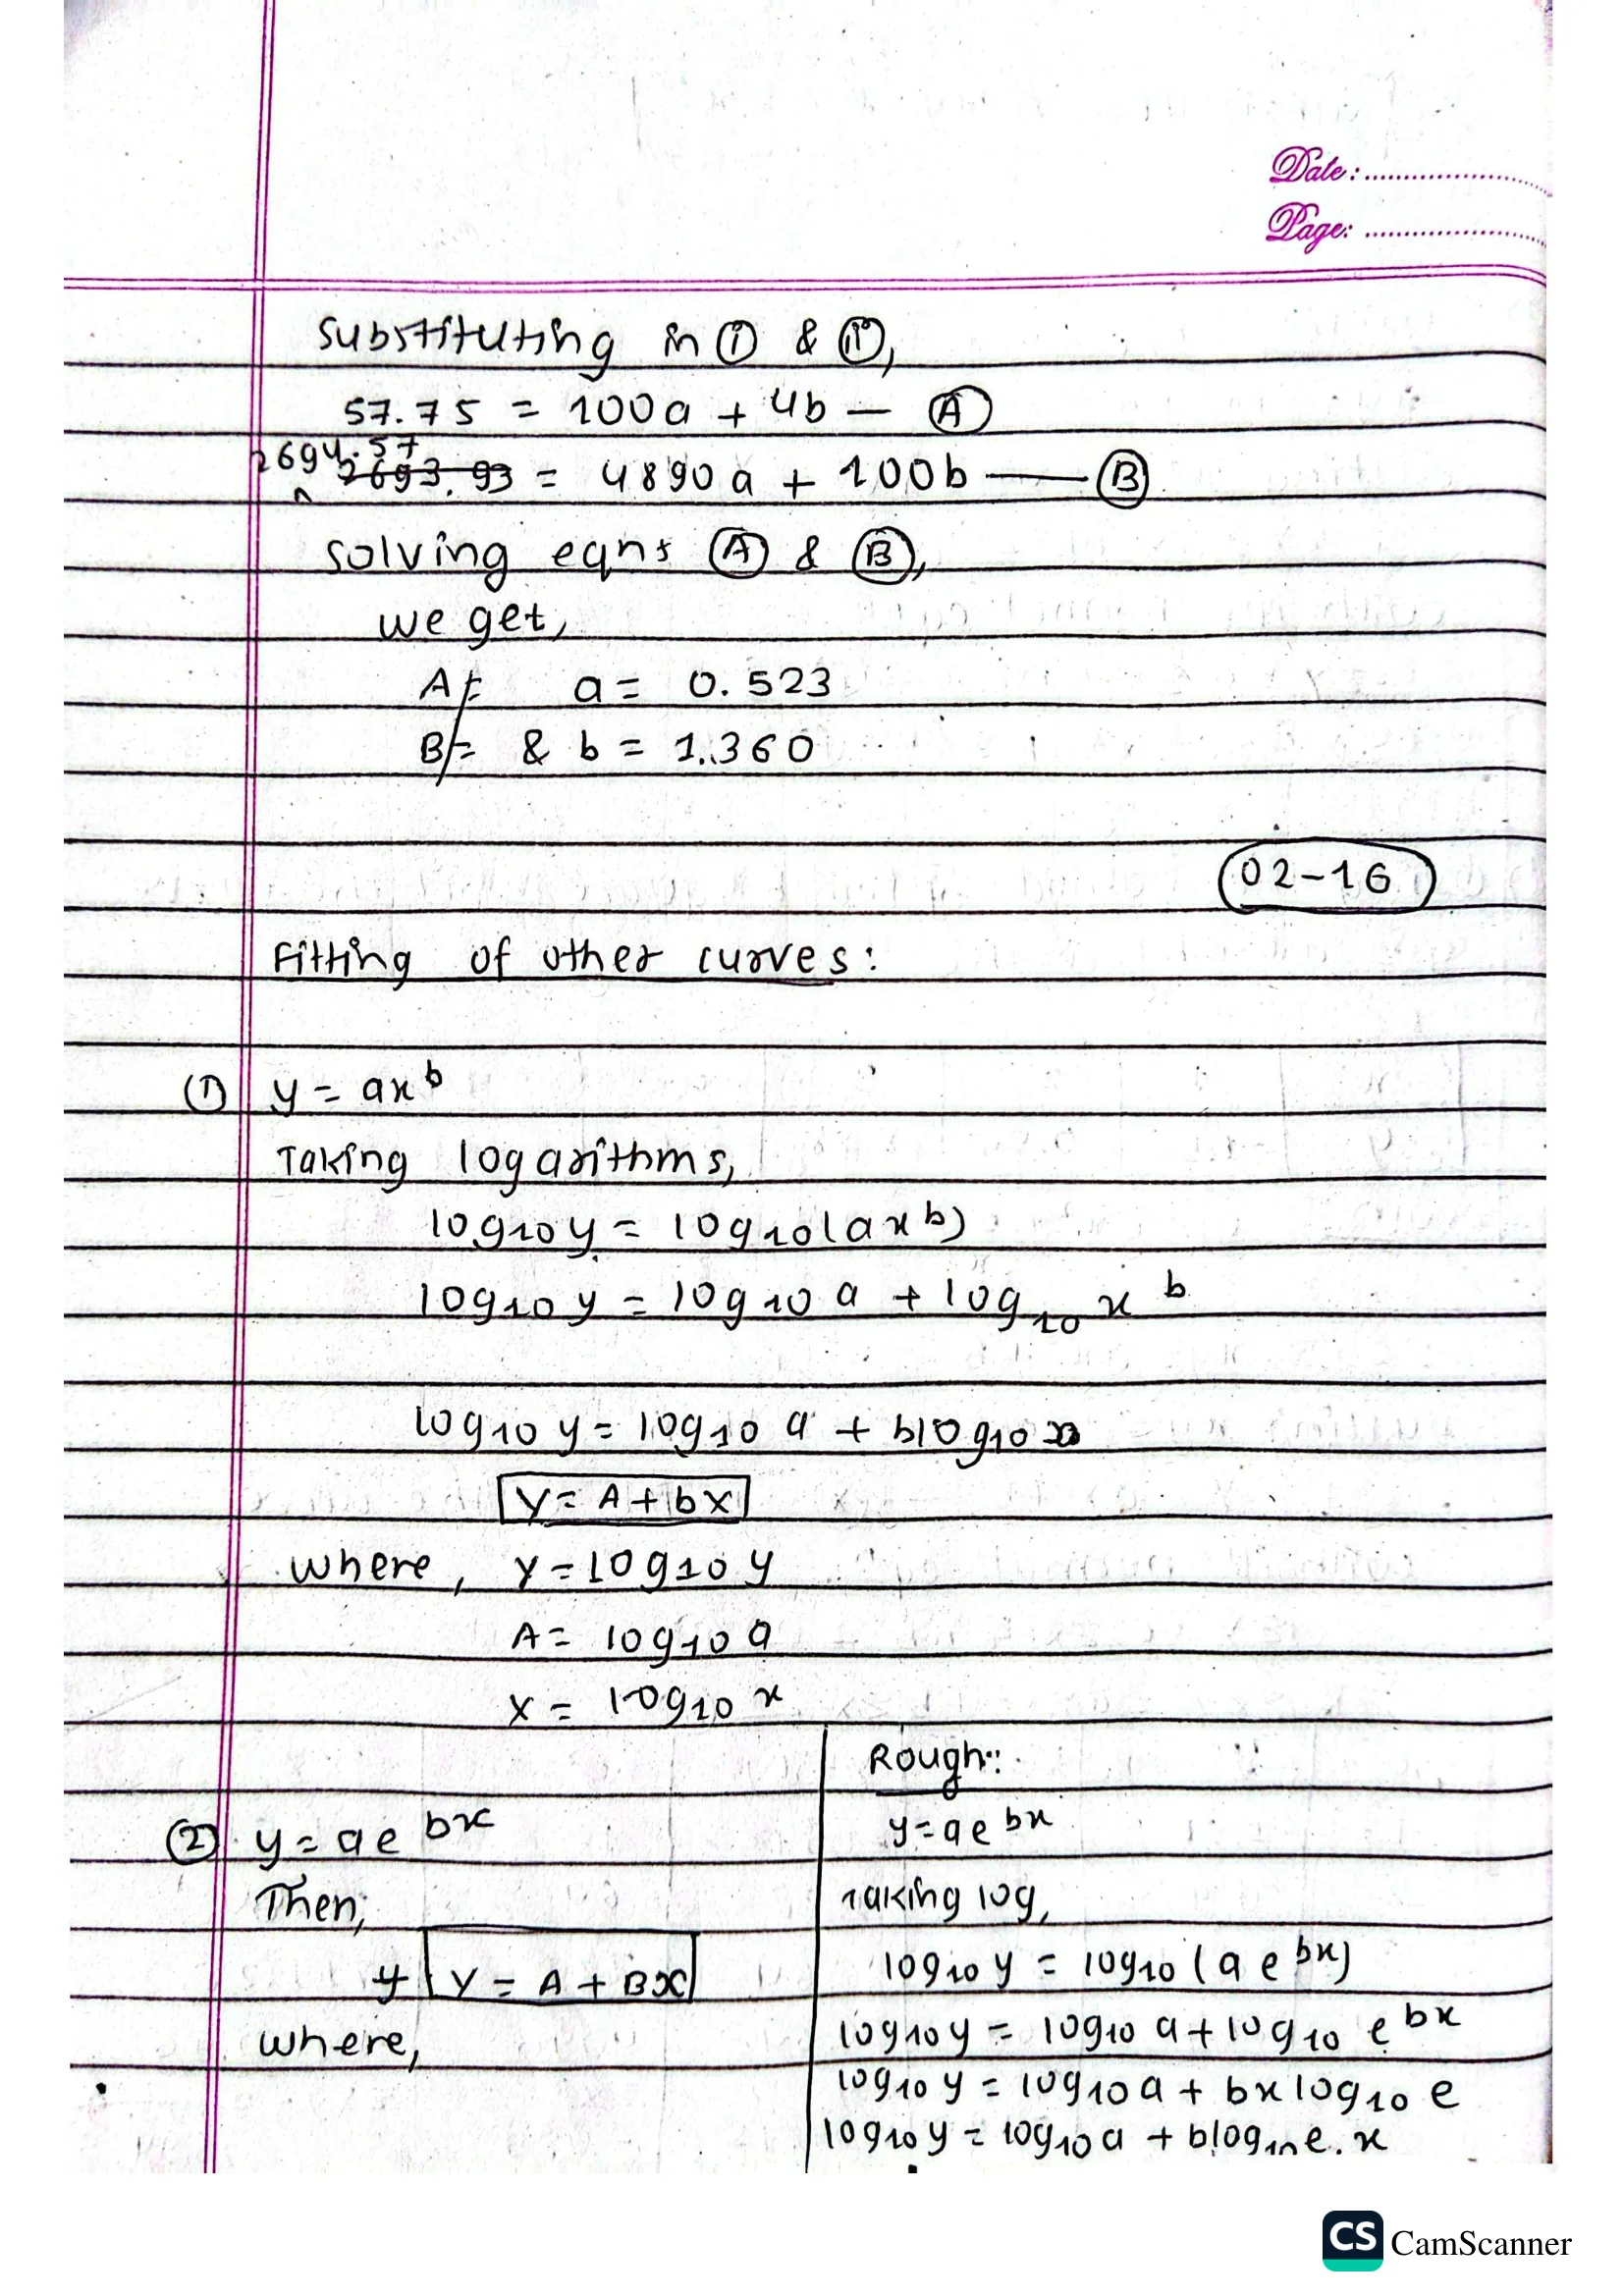 Date: ..................
Page: ..................
Substituting in ① & ⑪,
57.75 = 100a + 4b — Ⓐ
2694.57
2693.93 = 4890a + 100b —— Ⓑ
solving eqns Ⓐ & Ⓑ,
we get,
A = a = 0.523
B = & b = 1.360
02-16
Fitting of other curves:
① y = ax^b
Taking logarithms,
log₁₀ y = log₁₀ (ax^b)
log₁₀ y = log₁₀ a + log₁₀ x^b
log₁₀ y = log₁₀ a + b log₁₀ x
Y = A + bX
where, Y = log₁₀ y
A = log₁₀ a
X = log₁₀ x
② y = ae^bx
Then,
y Y = A + Bx
where,
Rough:
y = ae^bx
Taking log,
log₁₀ y = log₁₀ (a e^bx)
log₁₀ y = log₁₀ a + log₁₀ e^bx
log₁₀ y = log₁₀ a + bx log₁₀ e
log₁₀ y = log₁₀ a + b log₁₀ e. x
CS CamScanner